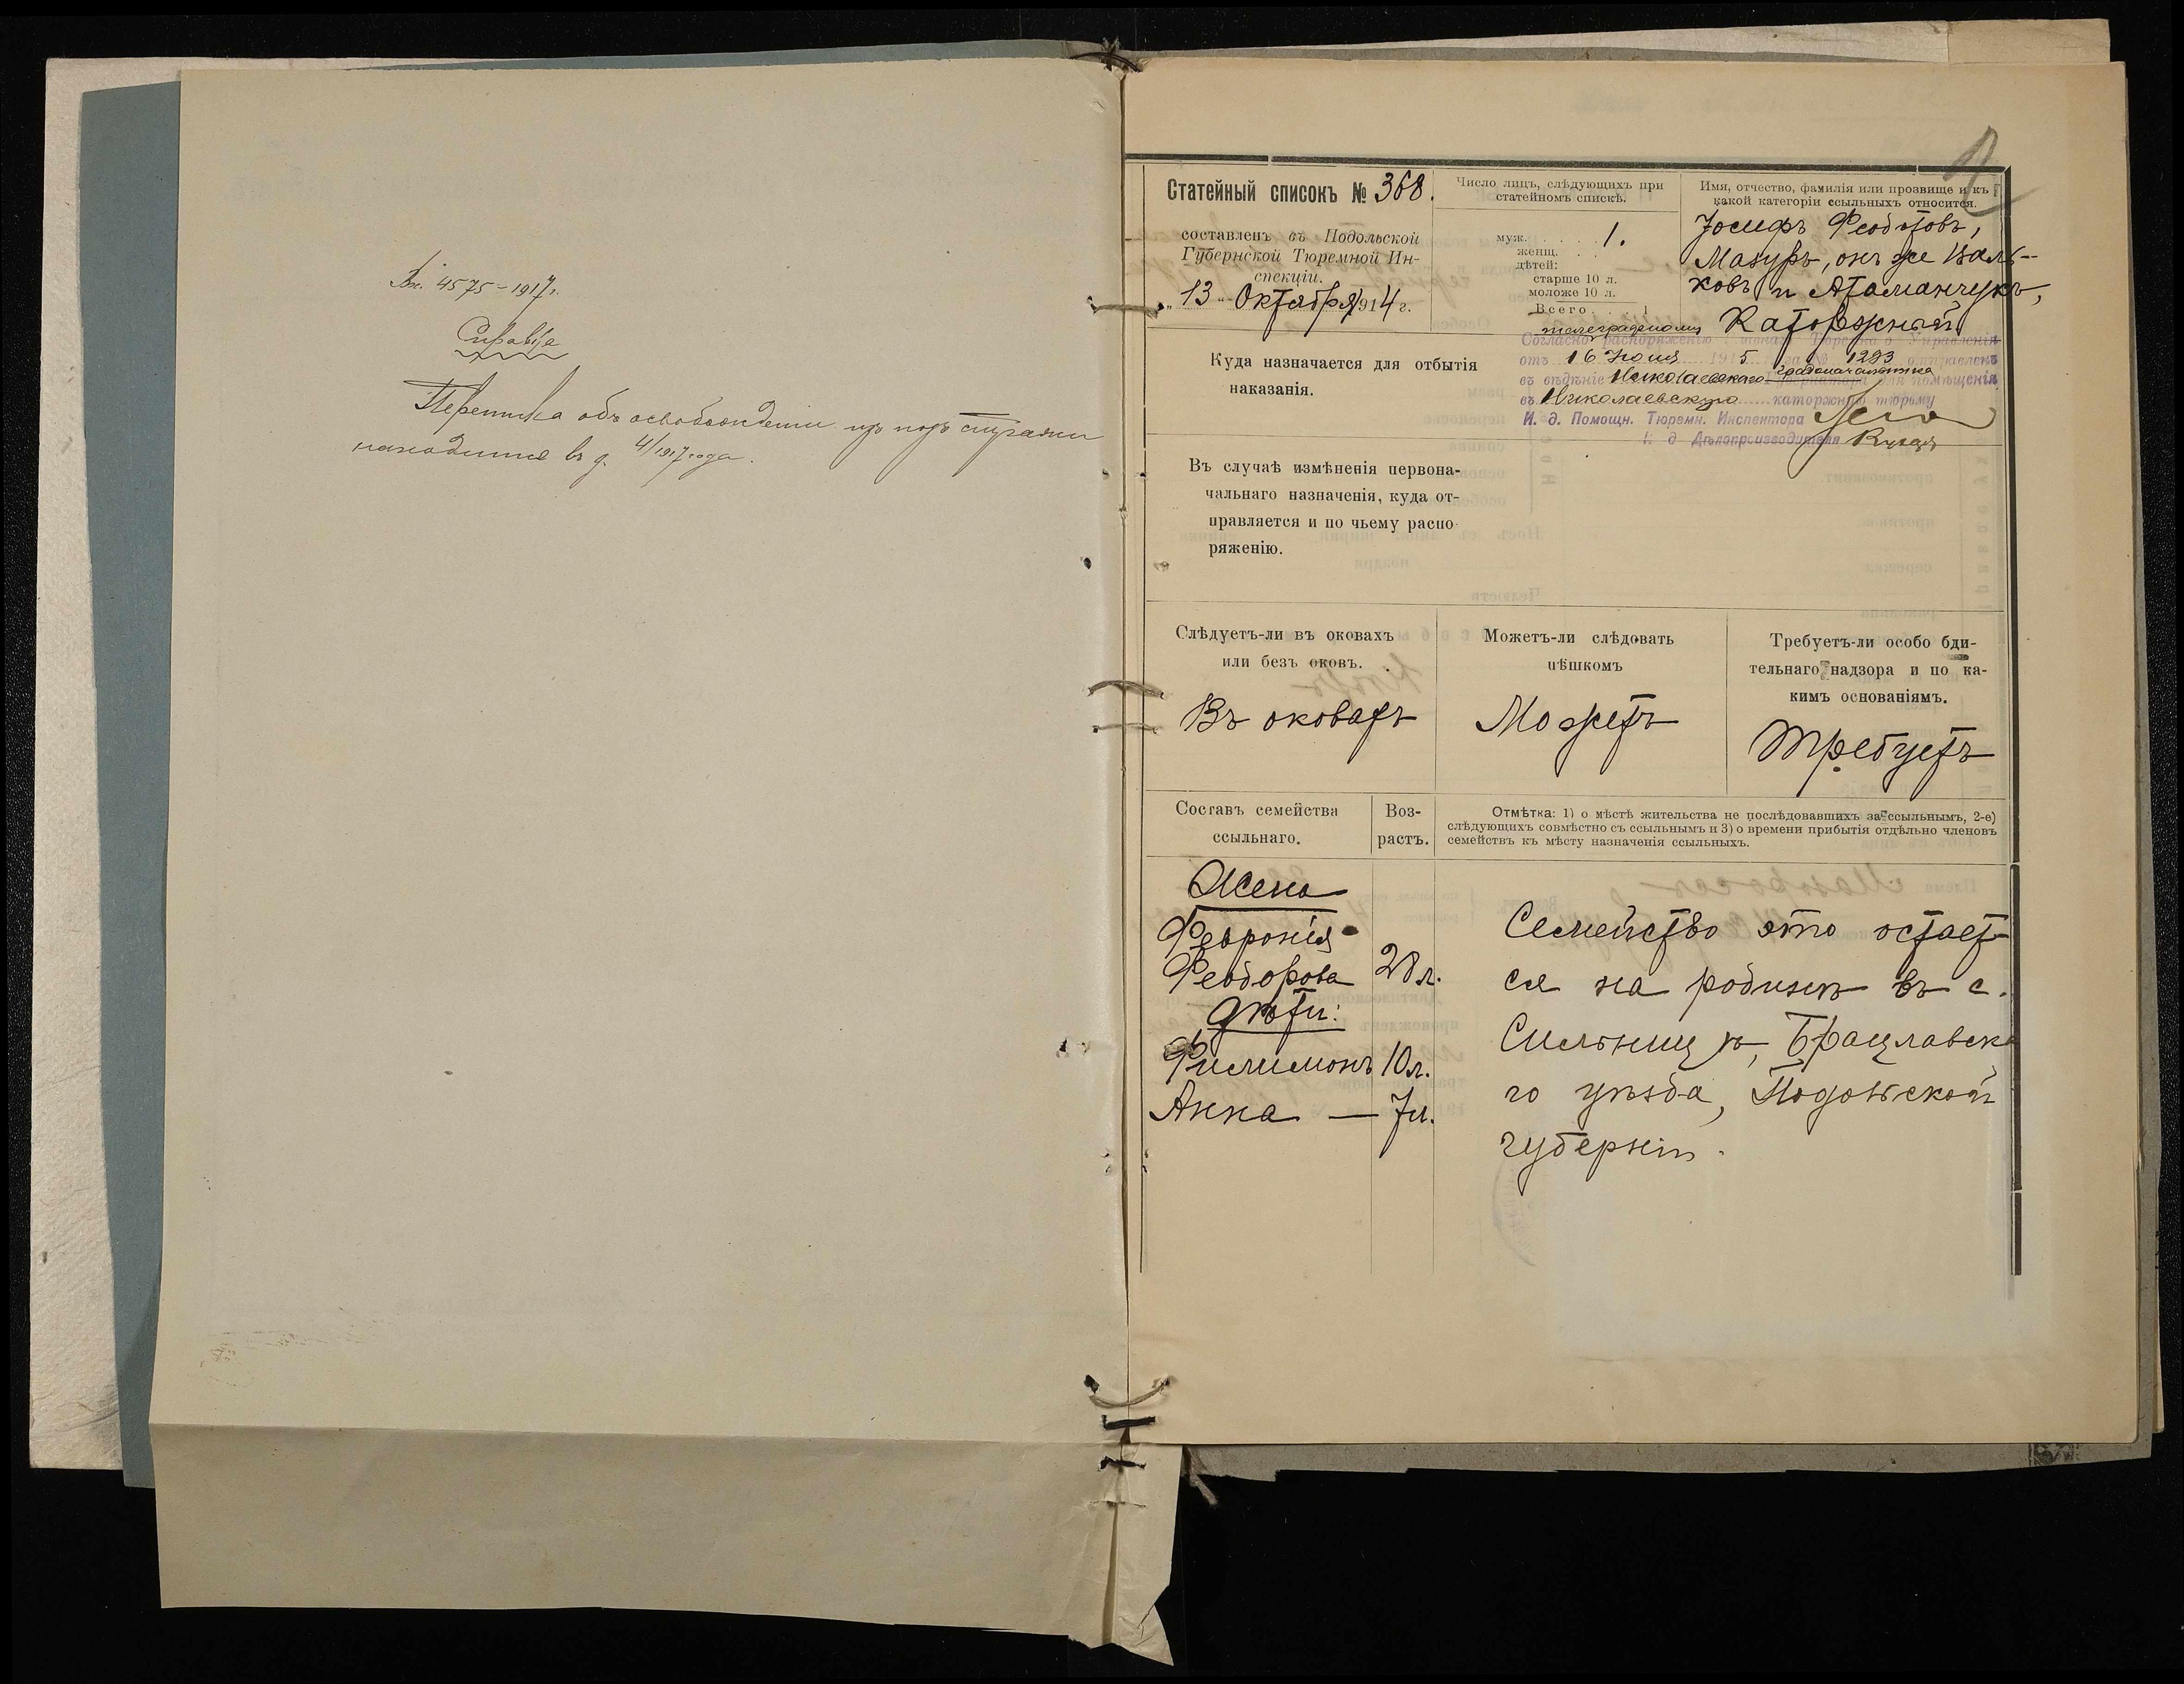 Вх. 4575–1917г.
Справка
Переписка объ освобожденіи изъ подъ стражи
находится въ д. 4/1917 года.
Статейный списокъ № 368.
составленъ въ Подольской
Губернской Тюремной Ин-
спекціи.
„13" Октября 1914 г.
Число лицъ, слѣдующихъ при
статейномъ спискѣ.
муж. . . . . 1.
женщ. . .
дѣтей:
старше 10 л.
моложе 10 л.
Всего . . . 1
Имя, отчество, фамилія или прозвище и къ
какой категоріи ссыльныхъ относится.
Іосифъ Феодотовъ,
Мазуръ, онъ же
ковъ и Атаманчукъ,
Каторжный
Куда назначается для отбытія
наказанія.
телеграфному
Согласно распоряженію Главнаго Тюремнаго Управленія
отъ 16 Іюня 1915 г. за № 1293 отправленъ
градоначальника
въ вѣдѣніе Николаевскаго Губернатора для помѣщенія
въ Николаевскую каторжную тюрьму
И. д. Помощн. Тюремн. Инспектора
И. д. Дѣлопроизводителя
Въ случаѣ измѣненія первона-
чальнаго назначенія, куда от-
правляется и по чьему распо-
ряженію.
Слѣдуетъ-ли въ оковахъ
или безъ оковъ.
Въ оковахъ
Можетъ-ли слѣдовать
пѣшкомъ
Можетъ
Требуетъ-ли особо бди-
тельнаго надзора и по ка-
кимъ основаніямъ.
Требуетъ
Составъ семейства
ссыльнаго.
Воз-
растъ.
Отмѣтка: 1) о мѣстѣ жительства не послѣдовавшихъ за ссыльнымъ, 2-е)
слѣдующихъ совмѣстно съ ссыльнымъ и 3) о времени прибытія отдѣльно членовъ
семействъ къ мѣсту назначенія ссыльныхъ.
Жена
Февронія
Феодорова 28 л.
Дѣти:
Филимонъ 10 л.
Анна — 7 л.
Семейство это остает-
ся на родинѣ въ с.
Сильницѣ, Брацлавска
го уѣзда, Подольской
губерніи.